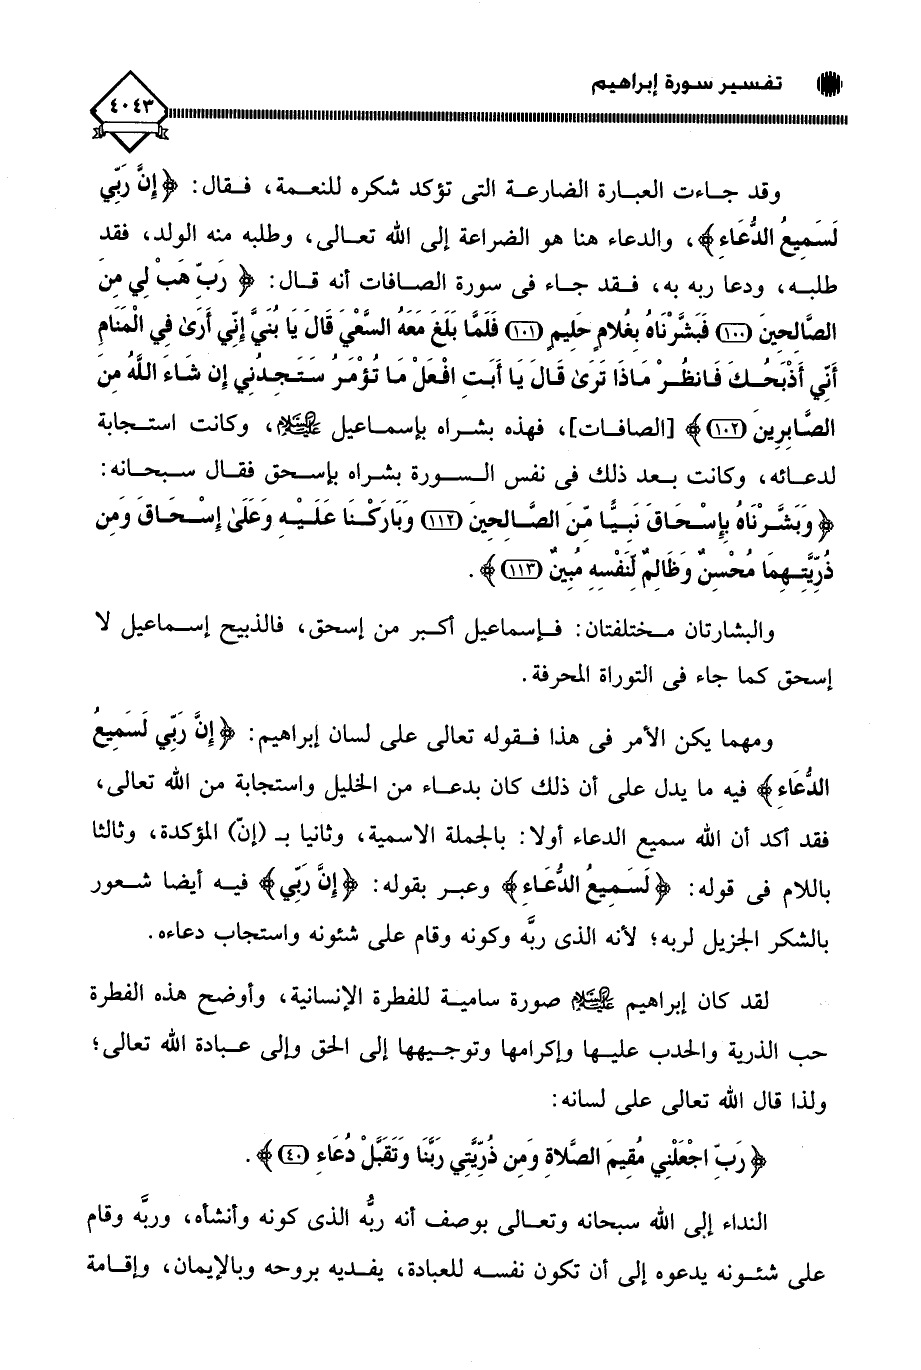 تفسير سورة إبراهيم
٤٠٤٣
وقد جاءت العبارة الضارعة التى تؤكد شكره للنعمة، فقال: ﴿إِنَّ رَبِّي
لَسَمِيعُ الدُّعَاءِ﴾، والدعاء هنا هو الضراعة إلى الله تعالى، وطلبه منه الولد، فقد
طلبه، ودعا ربه به، فقد جاء فى سورة الصافات أنه قال: ﴿رَبِّ هَبْ لِي مِنَ
الصَّالِحِينَ (١٠٠) فَبَشَّرْنَاهُ بِغُلَامٍ حَلِيمٍ (١٠١) فَلَمَّا بَلَغَ مَعَهُ السَّعْيَ قَالَ يَا بُنَيَّ إِنِّي أَرَىٰ فِي الْمَنَامِ
أَنِّي أَذْبَحُكَ فَانظُرْ مَاذَا تَرَىٰ قَالَ يَا أَبَتِ افْعَلْ مَا تُؤْمَرُ سَتَجِدُنِي إِن شَاءَ اللَّهُ مِنَ
الصَّابِرِينَ (١٠٢)﴾ [الصافات]، فهذه بشراه بإسماعيل عليه السلام، وكانت استجابة
لدعائه، وكانت بعد ذلك فى نفس السورة بشراه بإسحق فقال سبحانه:
﴿وَبَشَّرْنَاهُ بِإِسْحَاقَ نَبِيًّا مِّنَ الصَّالِحِينَ (١١٢) وَبَارَكْنَا عَلَيْهِ وَعَلَىٰ إِسْحَاقَ وَمِن
ذُرِّيَّتِهِمَا مُحْسِنٌ وَظَالِمٌ لِّنَفْسِهِ مُبِينٌ (١١٣)﴾.
والبشارتان مختلفتان: فإسماعيل أكبر من إسحق، فالذبيح إسماعيل لا
إسحق كما جاء فى التوراة المحرفة.
ومهما يكن الأمر فى هذا فقوله تعالى على لسان إبراهيم: ﴿إِنَّ رَبِّي لَسَمِيعُ
الدُّعَاءِ﴾ فيه ما يدل على أن ذلك كان بدعاء من الخليل واستجابة من الله تعالى،
فقد أكد أن الله سميع الدعاء أولا: بالجملة الاسمية، وثانيا بـ (إنّ) المؤكدة، وثالثا
باللام فى قوله: ﴿لَسَمِيعُ الدُّعَاءِ﴾ وعبر بقوله: ﴿إِنَّ رَبِّي﴾ فيه أيضا شعور
بالشكر الجزيل لربه؛ لأنه الذى ربَّه وكونه وقام على شئونه واستجاب دعاءه.
لقد كان إبراهيم عليه السلام صورة سامية للفطرة الإنسانية، وأوضح هذه الفطرة
حب الذرية والحدب عليها وإكرامها وتوجيهها إلى الحق وإلى عبادة الله تعالى؛
ولذا قال الله تعالى على لسانه:
﴿رَبِّ اجْعَلْنِي مُقِيمَ الصَّلَاةِ وَمِن ذُرِّيَّتِي رَبَّنَا وَتَقَبَّلْ دُعَاءِ (٤٠)﴾.
النداء إلى الله سبحانه وتعالى بوصف أنه ربُّه الذى كونه وأنشأه، وربَّه وقام
على شئونه يدعوه إلى أن تكون نفسه للعبادة، يفديه بروحه وبالإيمان، وإقامة